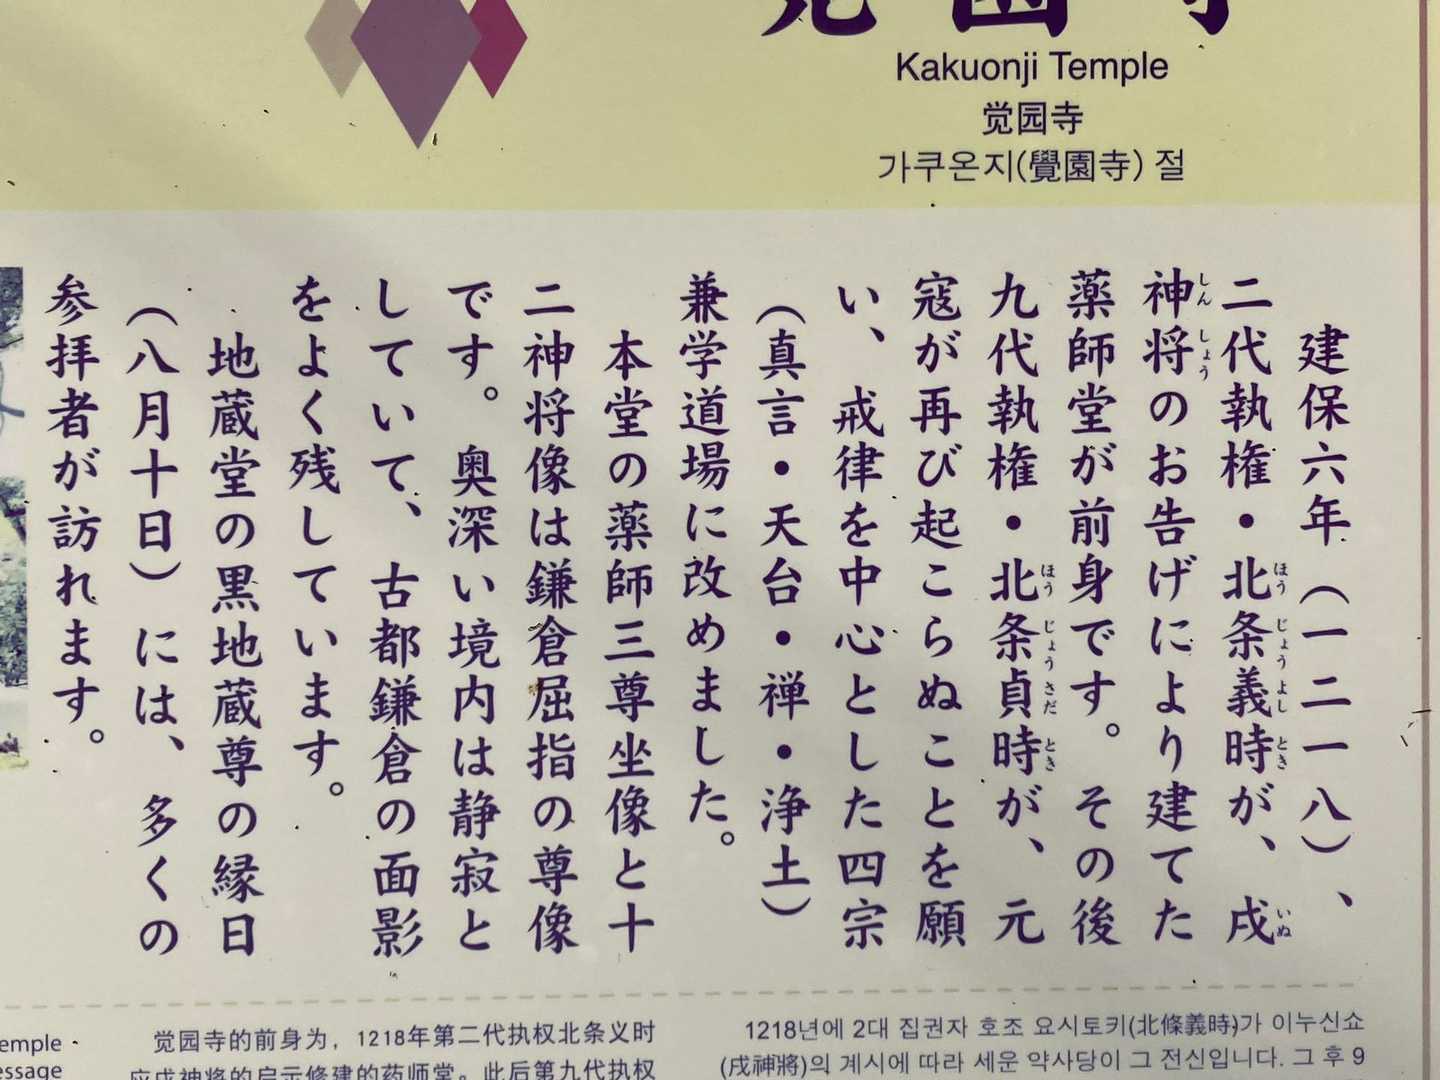 覚園寺
Kakuonji Temple
觉园寺
가쿠온지(覺園寺) 절
建保六年（一二一八）、
二代執権・北条義時が、戌
神将のお告げにより建てた
薬師堂が前身です。その後
九代執権・北条貞時が、元
寇が再び起こらぬことを願
い、戒律を中心とした四宗
（真言・天台・禅・浄土）
兼学道場に改めました。
本堂の薬師三尊坐像と十
二神将像は鎌倉屈指の尊像
です。奥深い境内は静寂と
していて、古都鎌倉の面影
をよく残しています。
地蔵堂の黒地蔵尊の縁日
（八月十日）には、多くの
参拝者が訪れます。
emple
essage
觉园寺的前身为，1218年第二代执权北条义时
应戌神将的启示修建的药师堂。此后第九代执权
1218년에 2대 집권자 호조 요시토키(北條義時)가 이누신쇼
(戌神將)의 계시에 따라 세운 약사당이 그 전신입니다. 그 후 9